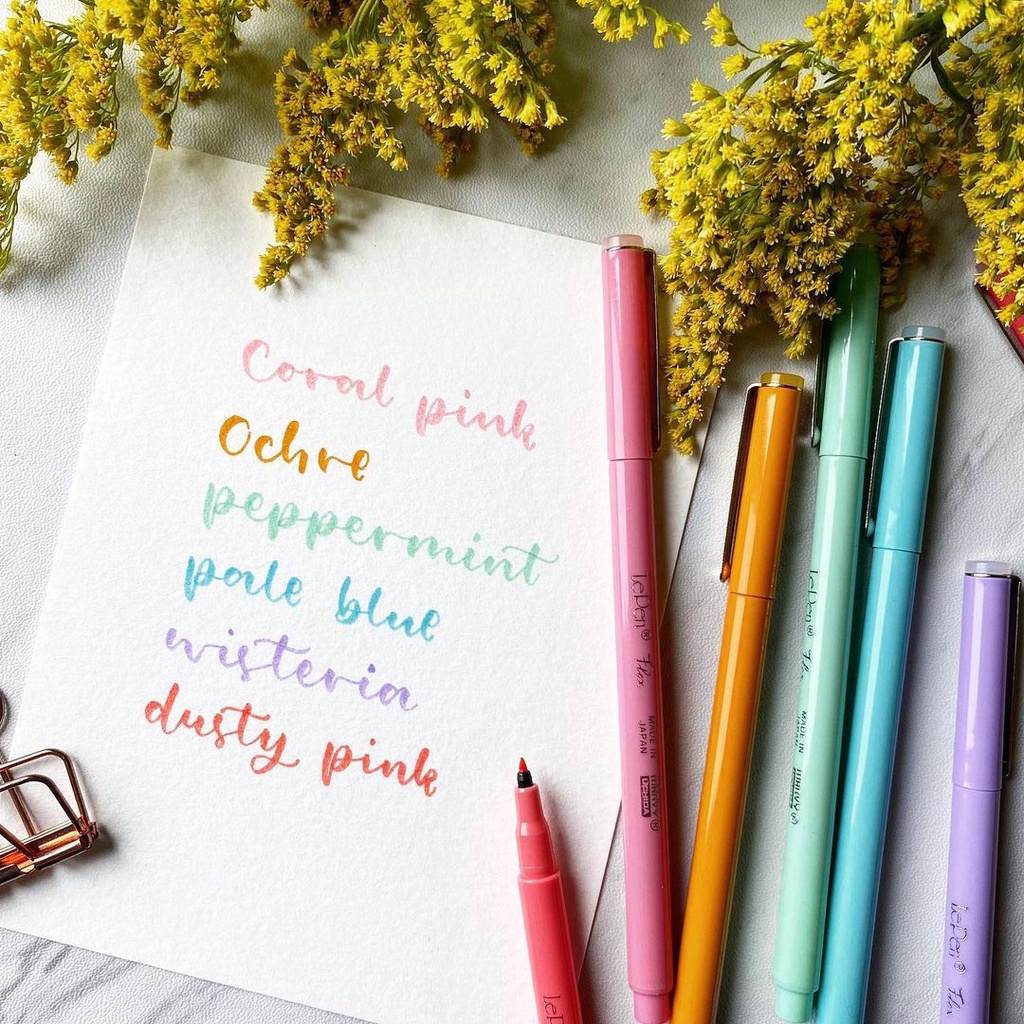 Coral pink
Ochre
peppermint
pale blue
wisteria
dusty pink
LePen® Flex MADE IN JAPAN MARVY UCHIDA ®
LePen® Flex MADE IN JAPAN MARVY ®
LePen® Flex
LePen